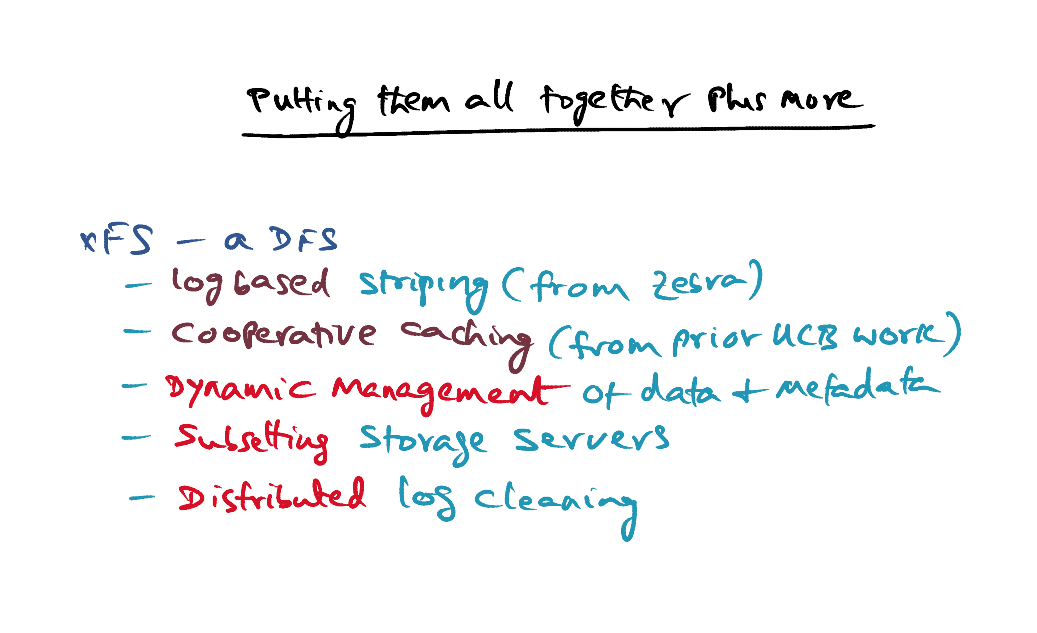 Putting them all together plus more
xFS - a DFS
- log based striping (from Zebra)
- Cooperative caching (from prior UCB work)
- Dynamic Management of data + metadata
- Subsetting storage servers
- Distributed log cleaning